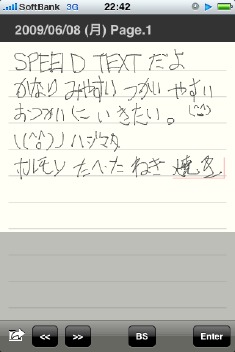 SoftBank 3G 22:42
2009/06/08 (月) Page.1
SPEED TEXT だよ
かなり みやすい つかい やすい
おつかい に いきたい。(^^)
\(^o^)ノ ハジマタ
ホルモン たべた ねぎ 焼き
<< >> BS Enter